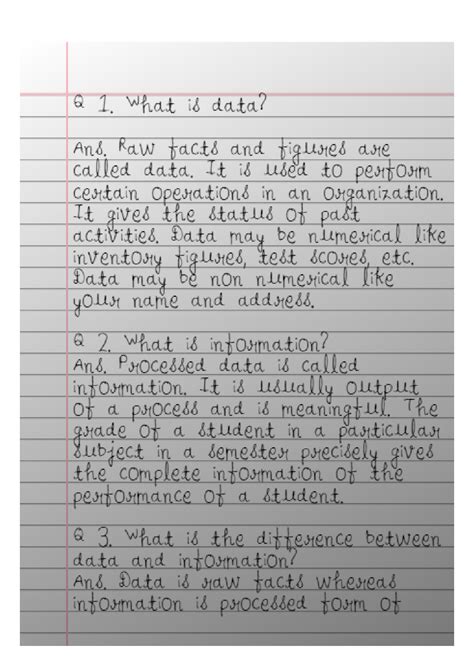 Q 1. What is data?
Ans. Raw facts and figures are
called data. It is used to perform
certain operations in an organization.
It gives the status of past
activities. Data may be numerical like
inventory figures, test scores, etc.
Data may be non numerical like
your name and address.
Q 2. What is information?
Ans. Processed data is called
information. It is usually output
of a process and is meaningful. The
grade of a student in a particular
subject in a semester precisely gives
the complete information of the
performance of a student.
Q 3. What is the difference between
data and information?
Ans. Data is raw facts whereas
information is processed form of